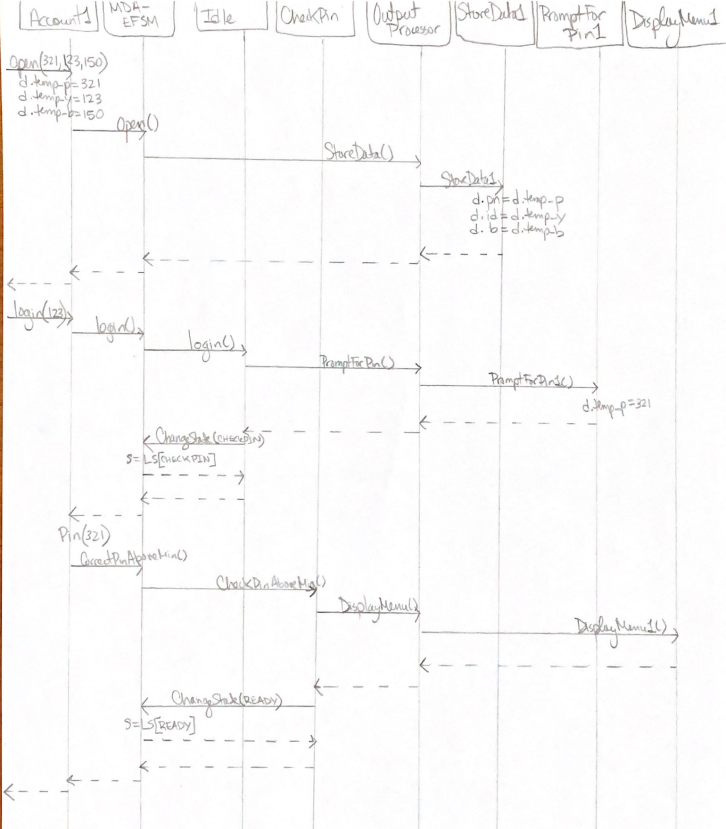 Account1
MDA-
EFSM
Idle
CheckPin
Output
Processor
StoreData1
PromptFor
Pin1
DisplayMenu1
Open(321,123,150)
d.temp-p=321
d.temp-y=123
d.temp-b=150
Open()
StoreData()
StoreData1
d.pn=d.temp-p
d.id=d.temp-y
d.b=d.temp-b
login(123)
login()
login()
PromptForPin()
PromptForPin1()
d.temp-p=321
ChangeState(CHECKPIN)
S=LS[CHECKPIN]
Pin(321)
CorrectPinAboveMin()
CheckPinAboveMin()
DisplayMenu()
DisplayMenu1()
ChangeState(READY)
S=LS[READY]